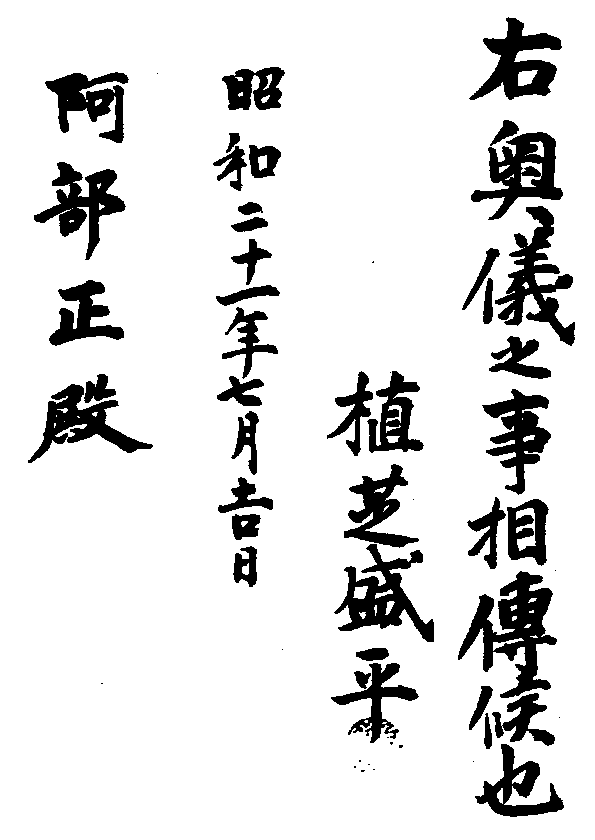 右奥儀之事相傳候也
植芝盛平
昭和二十一年七月吉日
阿部正殿